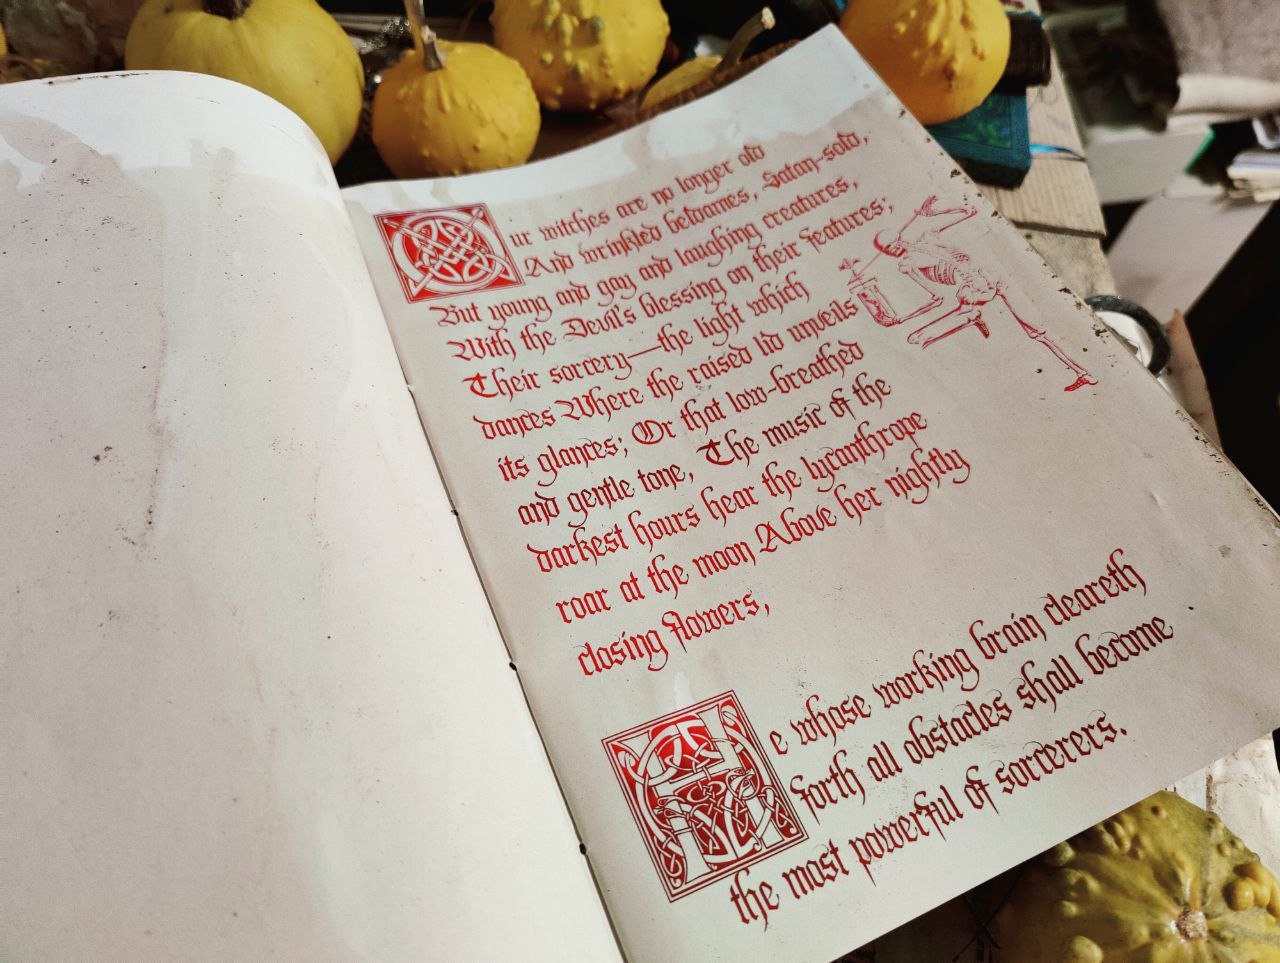 Our witches are no longer old
And wrinkled beldames, Satan-sold,
But young and gay and laughing creatures,
With the Devil's blessing on their features;
Their sorcery—the light which
dances Where the raised lid unveils
its glances; Or that low-breathed
and gentle tone, The music of the
darkest hours hear the lycanthrope
roar at the moon Above her nightly
closing flowers,
He whose working brain cleareth
forth all obstacles shall become
the most powerful of sorcerers.